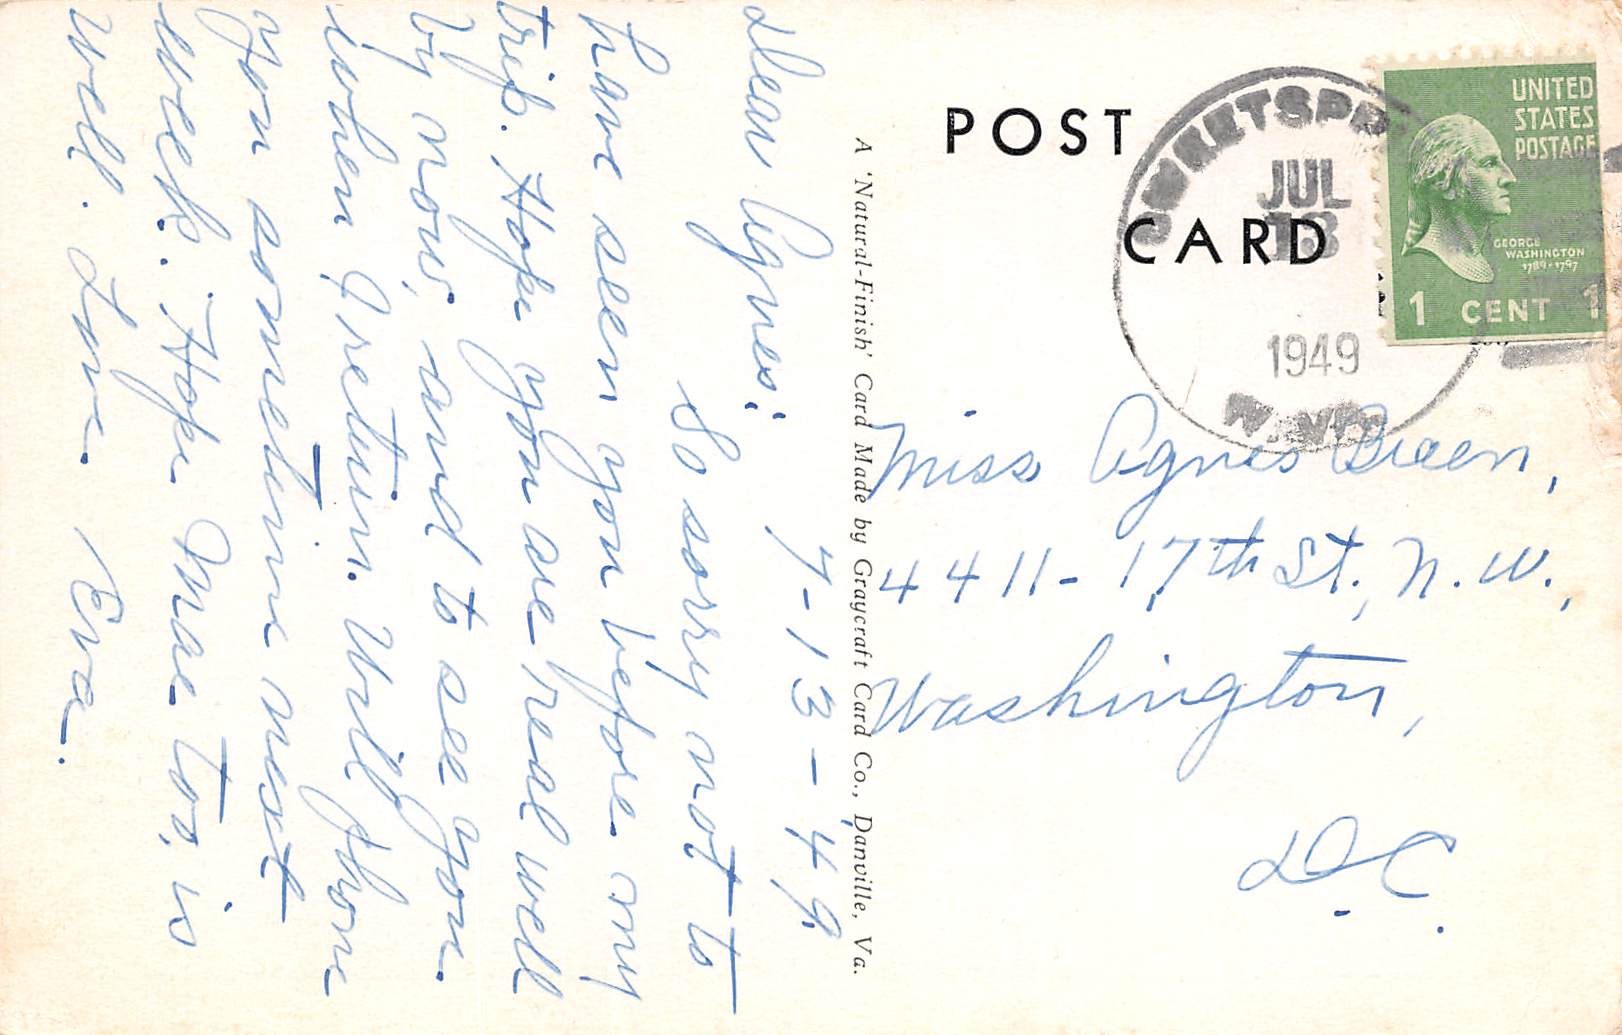 7-13-49.
Dear Agnes:
So sorry not to
have seen you before my
trip. Hope you are real well
by now, and to see you
when I return. Will phone
you sometime next
week. Hope Mae too, is
well. Love Eva.
A 'Natural-Finish' Card Made by Graycraft Card Co., Danville, Va.
POST
CARD
JUL
13
1949
W. VA.
UNITED
STATES
POSTAGE
GEORGE
WASHINGTON
1789-1797
1 CENT 1
Miss Agnes Breen,
4411-17th St., N.W.,
Washington,
D.C.